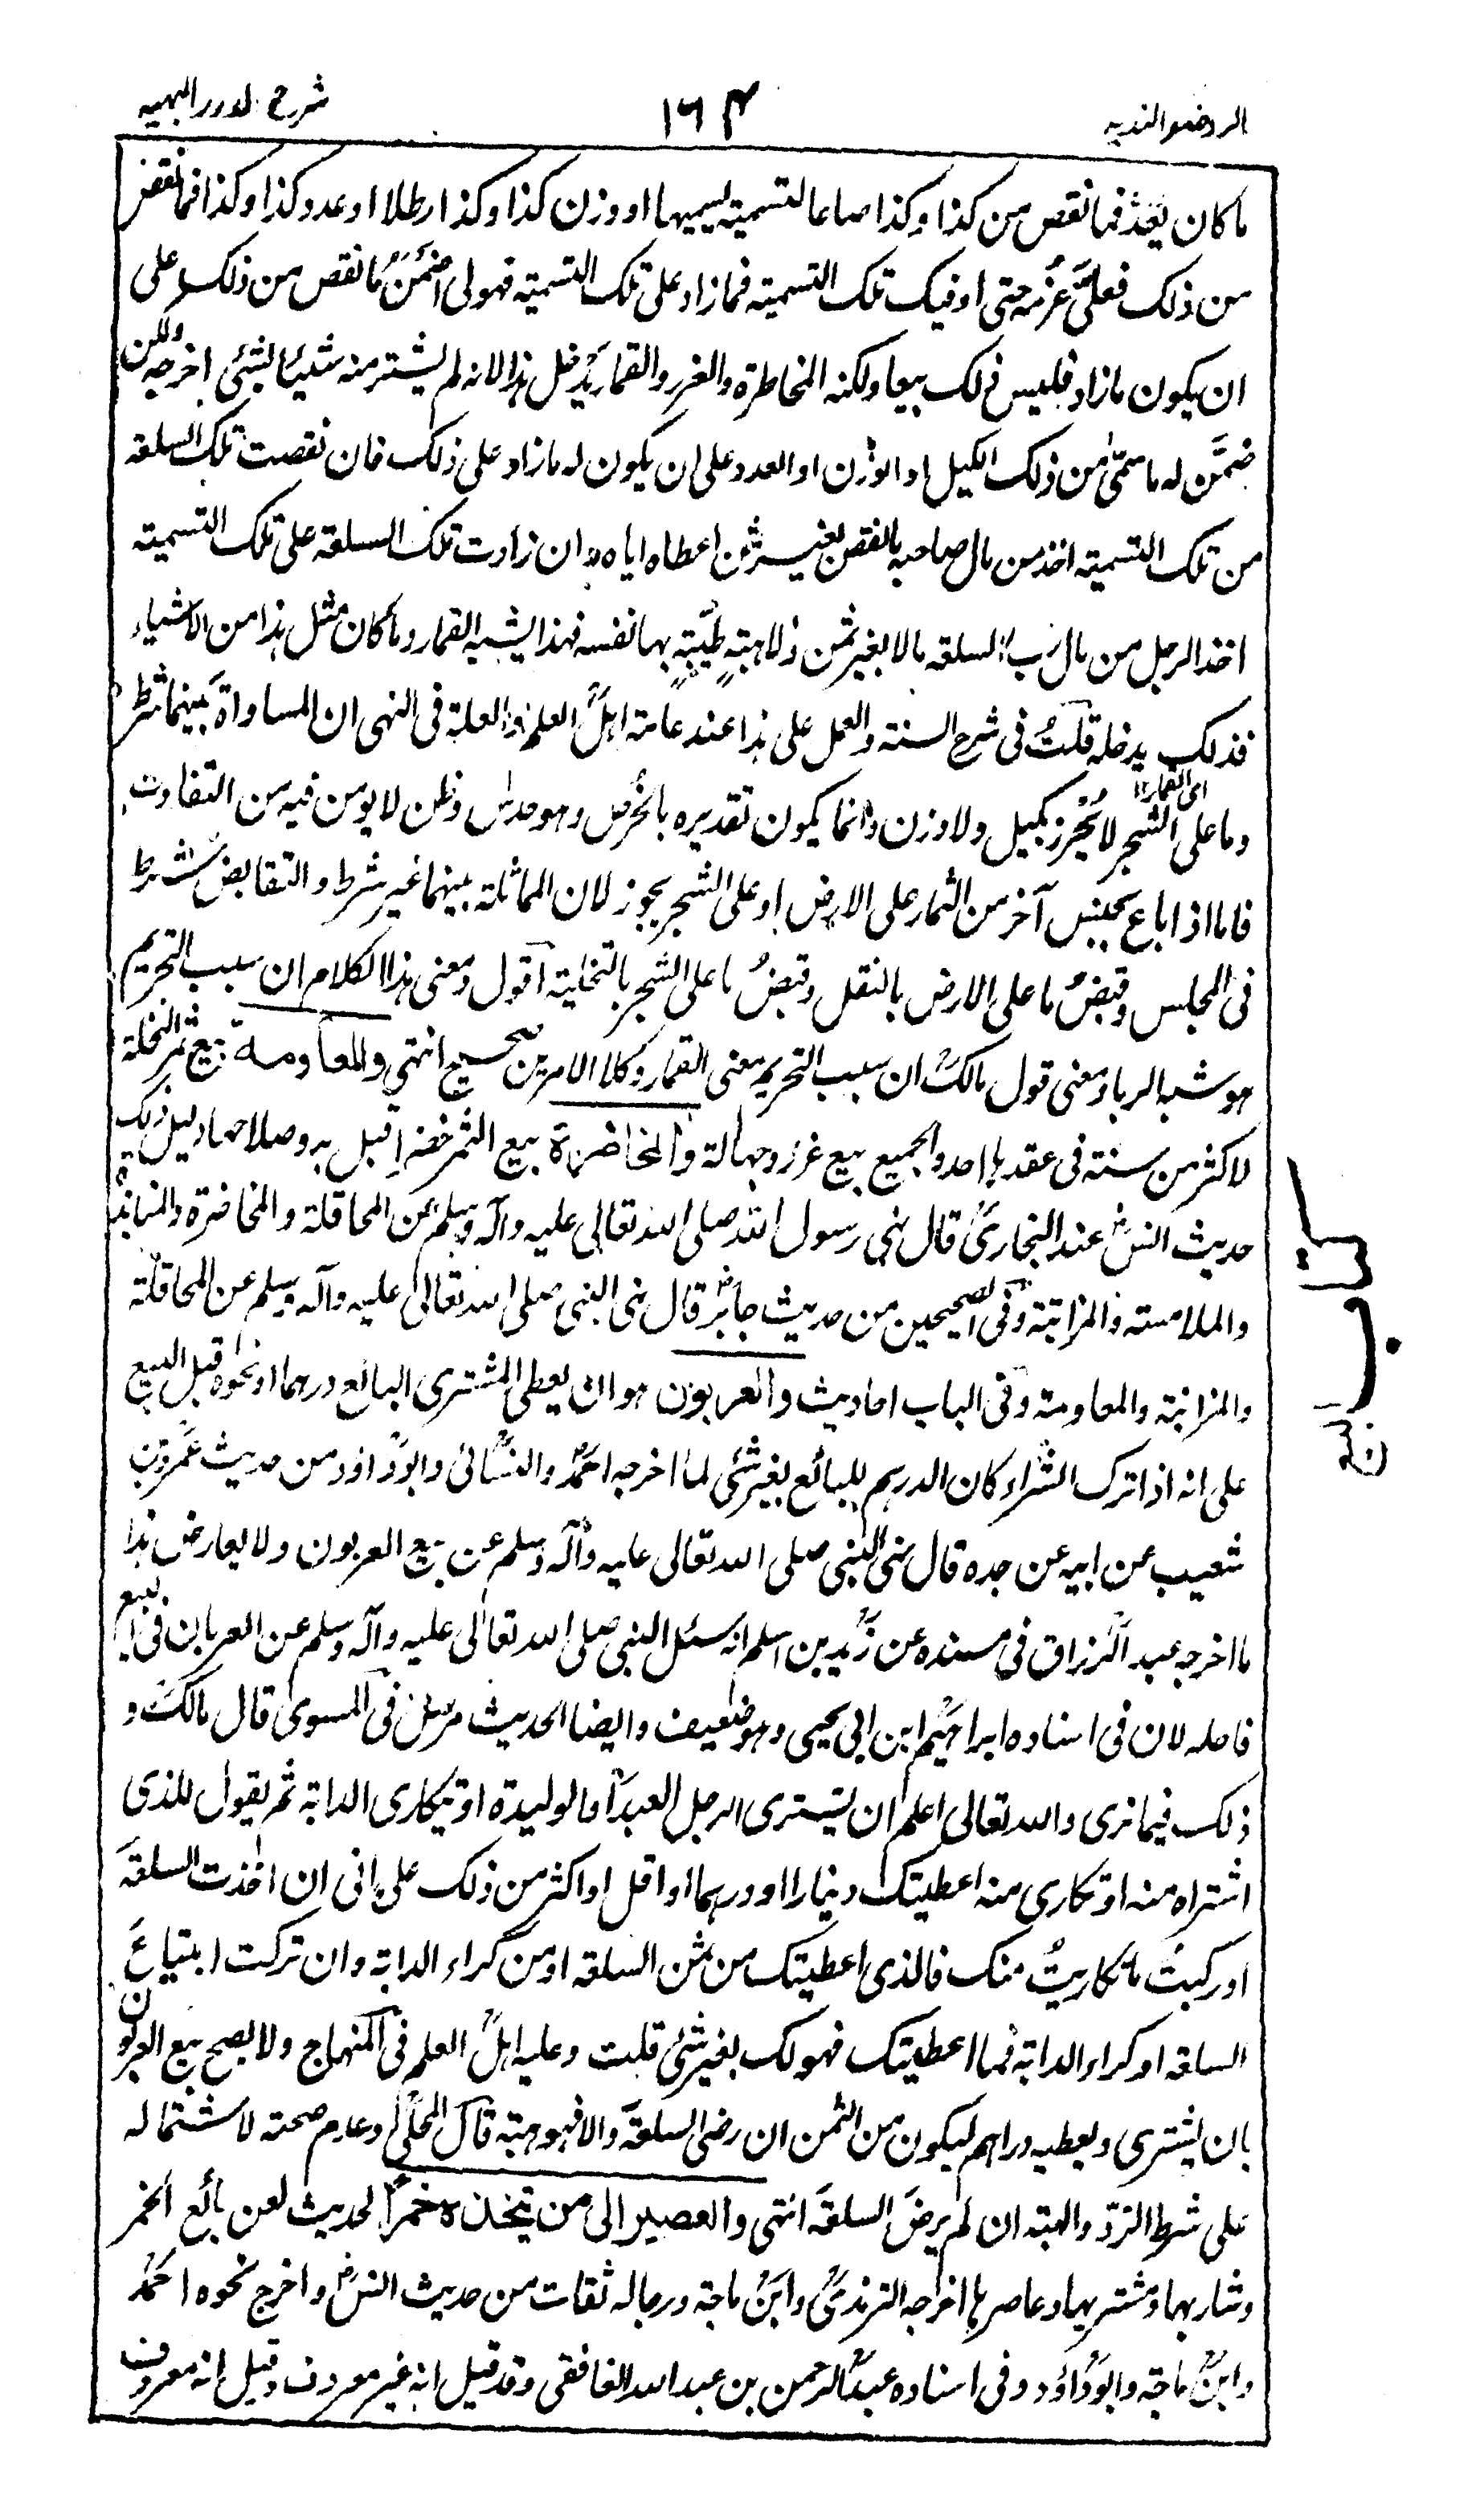 الروضة الندية ١٦٤ شرح الدرر البهية
ما كان يعد فما نقص من كذا وكذا صاعا لتسمية يسميها او وزن كذا وكذا رطلا او عدد كذا وكذا فما نقص
من ذلك فعلىّ غرمه حتى اوفيك تلك التسمية فما زاد على تلك التسمية فهو لى اضمن ما نقص من ذلك على
ان يكون ما زاد فليس ذلك بيعا ولكنه المخاطرة والغرر والقمار يدخل هذا لانه لم يشتر منه شيئا بشئ اخرجه ولكن
ضمّن له ما سمّى من ذلك الكيل او الوزن او العدد على ان يكون له ما زاد على ذلك فان نقصت تلك السلعة
من تلك التسمية اخذ من مال صاحبه ما نقص بغير ثمن اعطاه اياه وان زادت تلك السلعة على تلك التسمية
اخذ الرجل من مال رب السلعة مالا بغير ثمن ولا هبةٍ طيّبةٍ بها نفسه فهذا يشبه القمار وما كان مثل هذا من الاشياء
فذلك يدخله قلتُ فى شرح السنة والعمل على هذا عند عامة اهل العلم والعلة فى النهى ان المساواة بينهما شرط
اى الثمار ١٢
وما على الشجر لا يُحرز بكيل ولا وزن وانما يكون تقديره بالخرص وهو حدس وظن لا يومن فيه من التفاوت
فاما اذا باع بجنس آخر من الثمار على الارض او على الشجر يجوز لان المماثلة بينهما غير شرط والتقابض شرط
فى المجلس وقبضُ ما على الارض بالنقل وقبضُ ما على الشجر بالتخلية اقول ومعنى هذا الكلام ان سبب التحريم
هو شبه الربا ومعنى قول مالك ان سبب التحريم معنى القمار وكلا الامرين صحيح انتهى والمعاومة بيع ثمر النخلة
لاكثر من سنة فى عقد واحد والجميع بيع غرر وجهالة والمخاضرة بيع الثمر خضرا قبل بدو صلاحها دليل ذلك
حديث انسؓ عند البخارىؒ قال نهى رسول الله صلى الله تعالى عليه وآله وسلم عن المحاقلة والمخاضرة والمنابذة
والملامسة والمزابنة وفى الصحيحين من حديث جابرؓ قال نهى النبى صلى الله تعالى عليه وآله وسلم عن المحاقلة
والمزابنة والمعاومة وفى الباب احاديث والعربون هو ان يعطى المشترى البائع درهما او نحوه قبل البيع
على انه اذا ترك الشراء كان الدرهم للبائع بغير شئ لما اخرجه احمد والنسائى وابوداود من حديث عمرو بن
شعيب عن ابيه عن جده قال نهى النبى صلى الله تعالى عليه وآله وسلم عن بيع العربون ولا يعارض هذا
ما اخرجه عبد الرزاق فى مسنده عن زيد بن اسلم انه سئل النبى صلى الله تعالى عليه وآله وسلم عن العربان فى البيع
فاحله لان فى اسناده ابراهيم ابن ابى يحيى وهو ضعيف وايضا الحديث مرسل فى المسوى قال مالك و
ذلك فيما نرى والله تعالى اعلم ان يشترى الرجل العبد او الوليدة او يتكارى الدابة ثم يقول للذى
اشتراه منه او تكارى منه اعطيتك دينارا او درهما او اقل او اكثر من ذلك على انى ان اخذت السلعة
او ركبت ما تكاريتُ منك فالذى اعطيتك من ثمن السلعة او من كراء الدابة وان تركت ابتياع
السلعة او كراء الدابة فما اعطيتك فهو لك بغير شئ قلت وعليه اهل العلم فى المنهاج ولا يصح بيع العربون
بان يشترى ويعطيه دراهم ليكون من الثمن ان رضى السلعة والا فهو هبة قال المحلى وعدم صحته لاشتماله
على شرط الردّ والهبة ان لم يرض السلعة انتهى والعصير الى من يتخذه خمرًا لحديث لعن بائع الخمر
وشاربها ومشتريها وعاصرها اخرجه الترمذىؒ وابنؒ ماجة ورجاله ثقات من حديث انسؓ واخرج نحوه احمد
وابنؒ ماجة وابوداؤد وفى اسناده عبد الرحمن بن عبد الله الغافقى وقد قيل انه غير معروف وقيل انه معروف